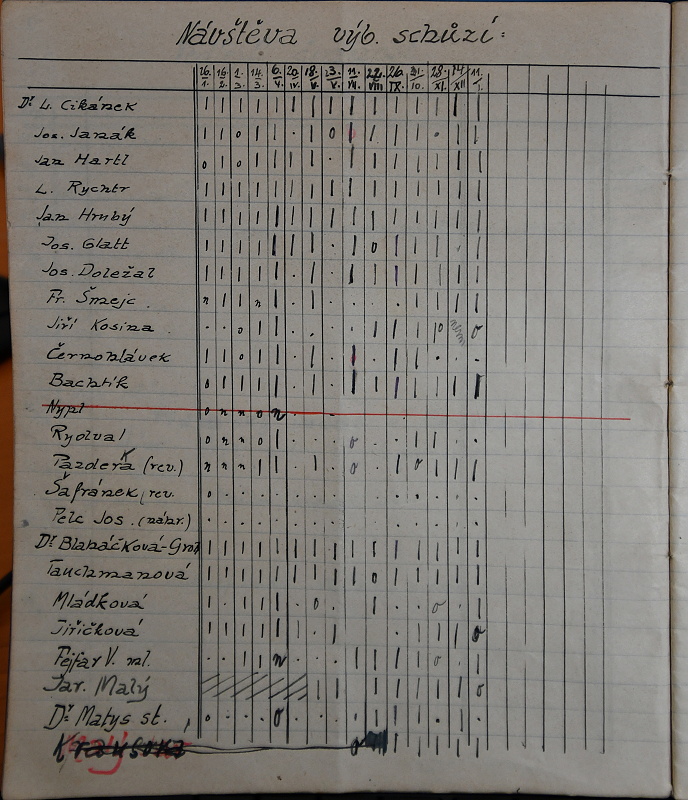 Návštěva výb. schůzí:
26. 16. 1. 14. 6. 20. 18. 13. 11. 22. 26. 31. 28. 14. 11.
1. 2. 3. 3. V. IV. V. V. VI. VIII IX. 10. XI. XII I.
Dr L. Cikánek | | | | | | | | | | | | | | |
Jos. Janák | | o | | · | o | | | | · | |
Jan Hartl o | o | | | | · | | | | | | |
L. Rychtr | | | | | | | | | | | | | | |
Jan Hrubý | | | | | | | | | | | | | | |
Jos. Glatt | | | | | | | · | o | | | |
Jos. Doležal | | | | | · | · | | | | | | |
Fr. Šmejc n | | n | · | · · · · | | | |
Jiří Kosina · · o | | · · · · | | | o
Černohlávek | | o | | · | · | · | | · · ·
Bachtík o | | | | · | · | | | | | | |
Nypl o n n o n · · ·
Rydval o n n o | · · · o · · | | · ·
Pazderák (rev.) n n n | | · | · o · | o | | |
Šafránek, rev. o · · · · · · · · · · · · · ·
Pelc Jos. (náhr.) · · · · · · · · · · · · · · ·
Dr Blaháčková-
Tauchmanová | | | | | | | | | o | | | | |
Mládková | · | | | · o · · | · · o · |
Jiřičková | | | | | · · | · · · | | | o
Fejfar V. ml. · · | | n · · · | | | | o · |
Jar. Malý | | | | | | | | o
Dr Matys st. o · · · o · · · · | | | · | ·